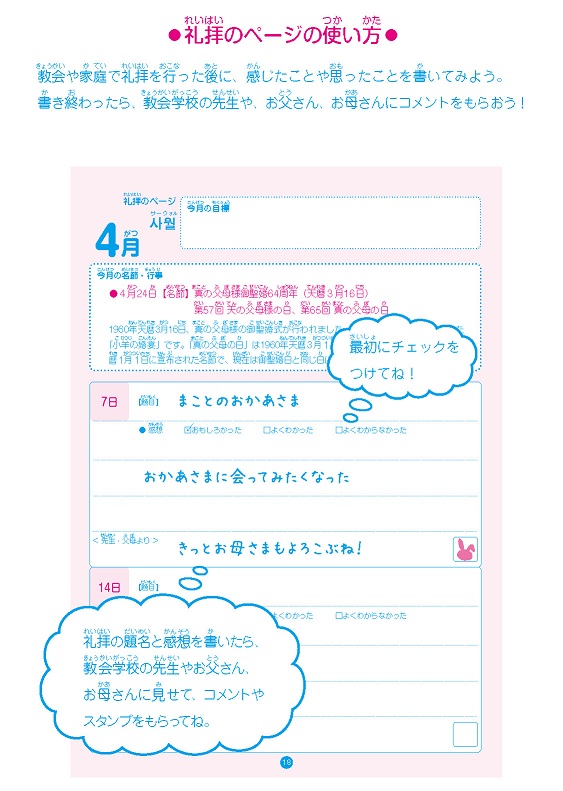 ●礼拝のページの使い方●
教会や家庭で礼拝を行った後に、感じたことや思ったことを書いてみよう。
書き終わったら、教会学校の先生や、お父さん、お母さんにコメントをもらおう！
礼拝のページ
サーウォル
사월
4月
今月の目標
今月の名節・行事
●4月24日【名節】真の父母様御聖婚64周年（天暦3月16日）
第57回 天の父母様の日、第65回 真の父母の日
1960年天暦3月16日、真の父母様の御聖婚式が行われました
「小羊の婚宴」です。「真の父母の日」は1960年天暦3月1
暦1月1日に宣布された名節で、現在は御聖婚日と同じ日に
最初にチェックを
つけてね！
7日
【題目】
まことのおかあさま
●感想 ☑おもしろかった □よくわかった □よくわからなかった
おかあさまに会ってみたくなった
<先生・父母より>
きっとお母さまもよろこぶね！
14日
【題目】
□よくわかった □よくわからなかった
礼拝の題名と感想を書いたら、
教会学校の先生やお父さん、
お母さんに見せて、コメントや
スタンプをもらってね。
18